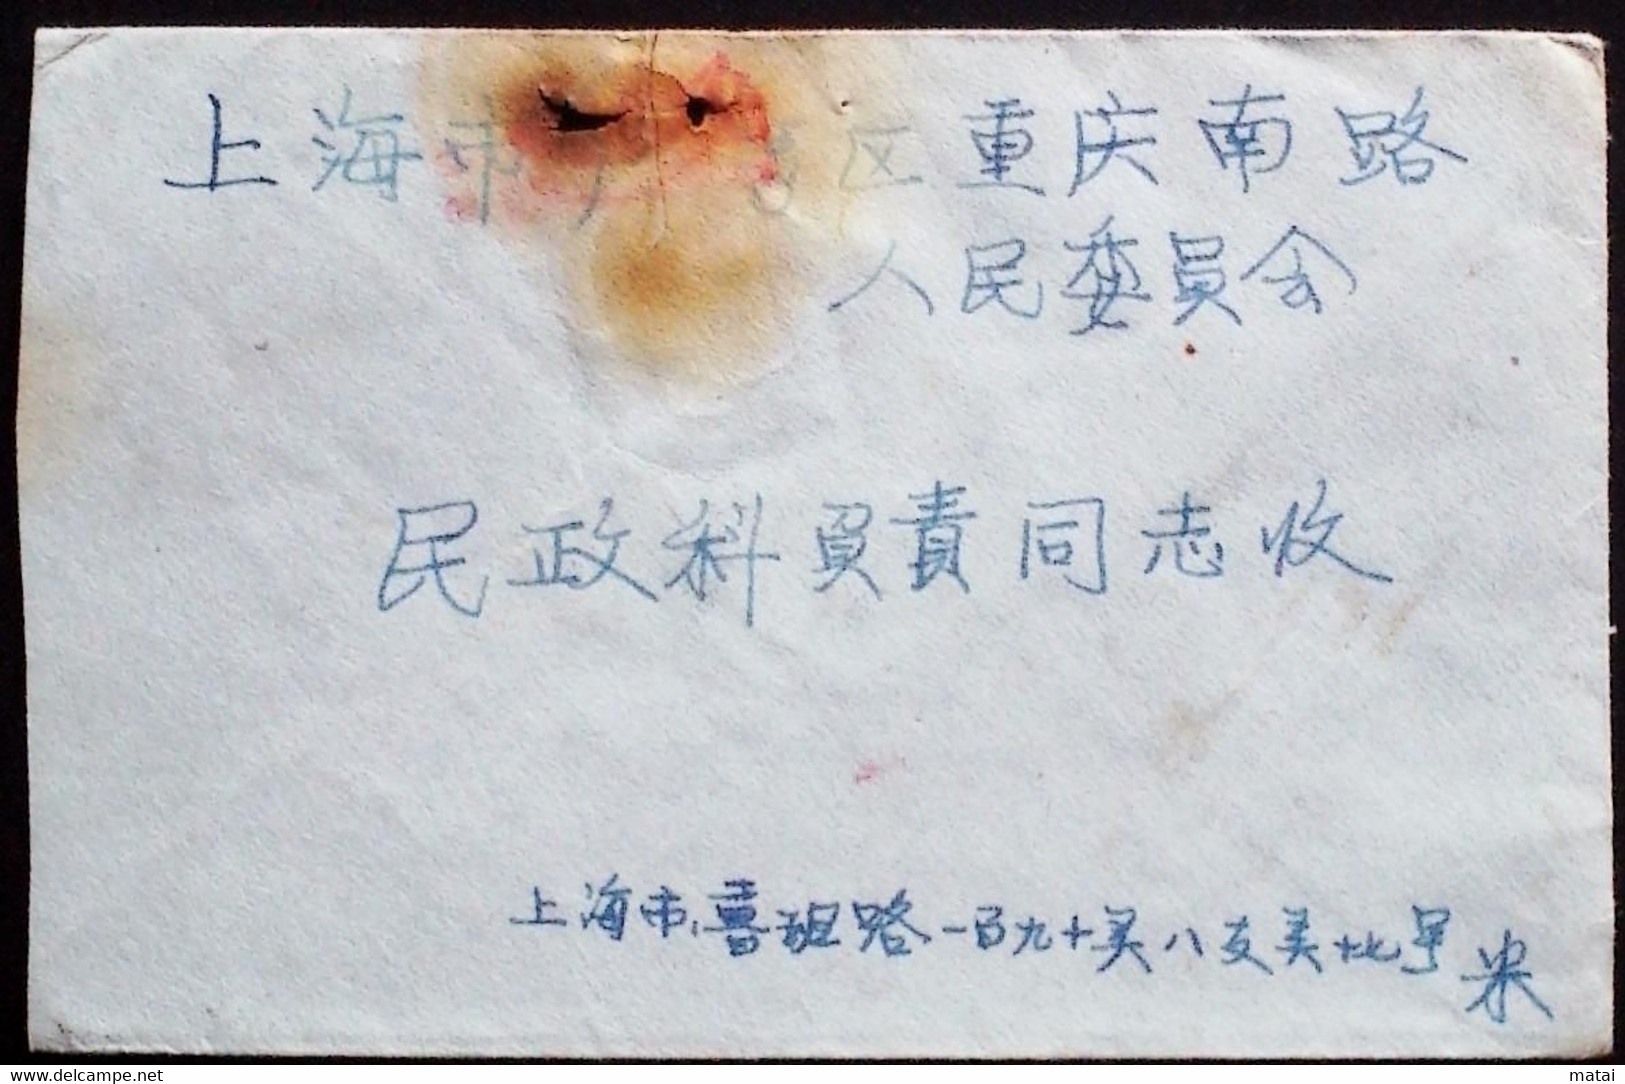 上海市 区重庆南路
人民委員会
民政科負責同志收
上海市 班路一百九十弄八支弄 号 朱
www.delcampe.net
matai